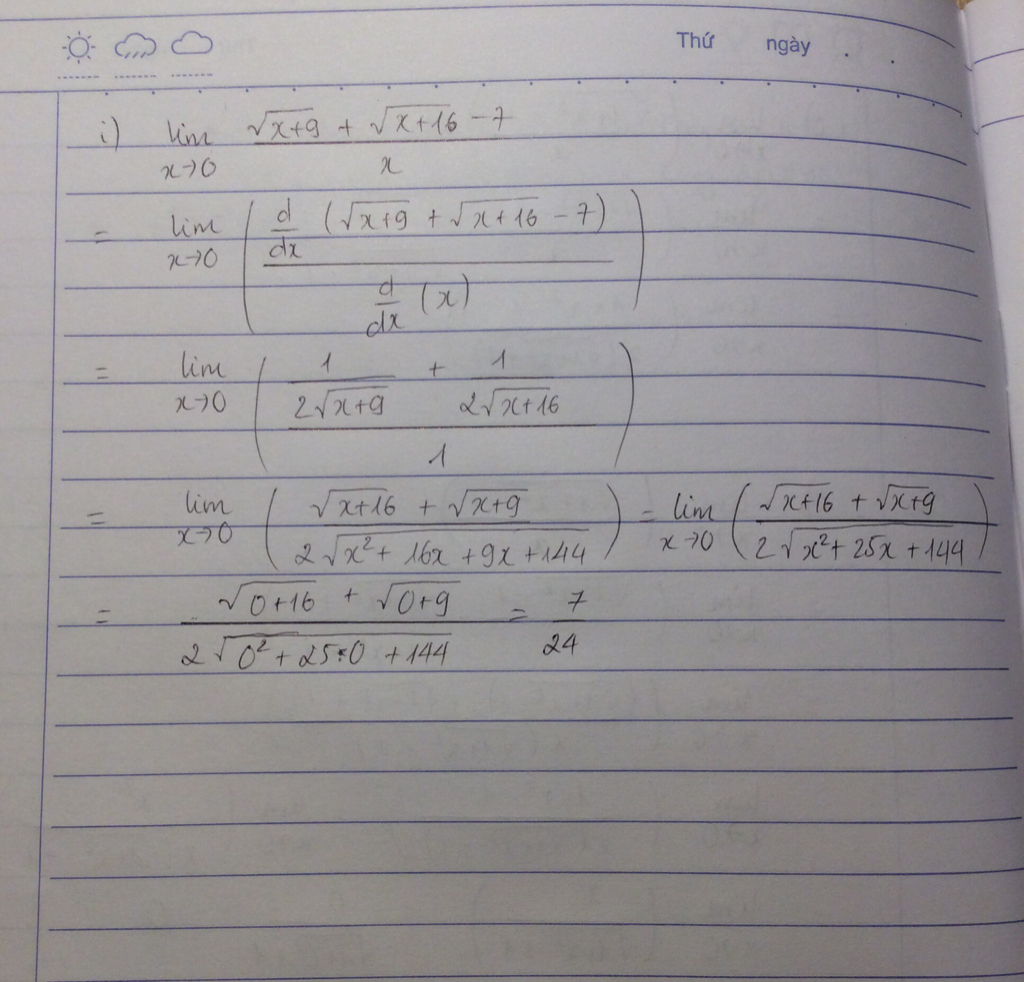 Thứ ngày . .
i) lim x→0 (√(x+9) + √(x+16) - 7)/x
= lim x→0 ((d/dx (√(x+9) + √(x+16) - 7))/(d/dx (x)))
= lim x→0 ((1/(2√(x+9)) + 1/(2√(x+16)))/1)
= lim x→0 ((√(x+16) + √(x+9))/(2√(x²+16x+9x+144))) = lim x→0 ((√(x+16) + √(x+9))/(2√(x²+25x+144)))
= (√(0+16) + √(0+9))/(2√(0²+25·0+144)) = 7/24